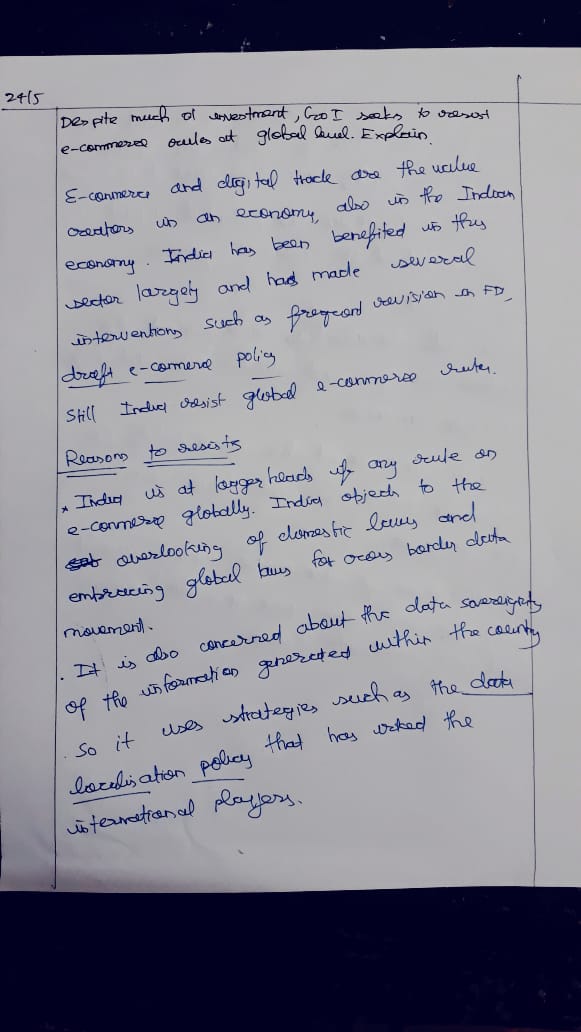 24/5
Despite much of investment, GoI seeks to resist
e-commerce rules at global level. Explain.
E-commerce and digital trade are the value
creators in an economy, also in the Indian
economy. India has been benefited in this
sector largely and had made several
interventions such as frequent revision in FDI,
draft e-commerce policy
Still India resist global e-commerce rules.
Reasons to resists
* India is at loggerheads of any rule on
e-commerce globally. India objects to the
overlooking of domestic laws and
embracing global laws for cross border data
movement.
. It is also concerned about the data sovereignty
of the information generated within the country
. So it uses strategies such as the data
localisation policy that has irked the
international players.